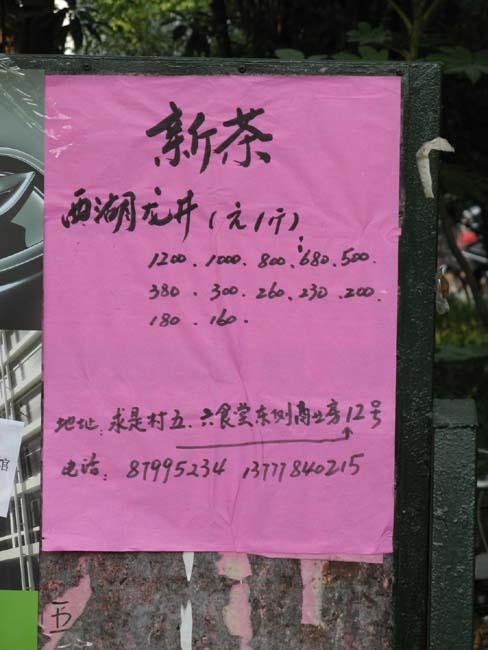 新茶
西湖龙井(元/斤):
1200. 1000. 800. 680. 500.
380. 300. 260. 230. 200.
180. 160.
地址: 求是村五、六食堂东侧商业房12号
电话: 87995234 13777840215
馆
书